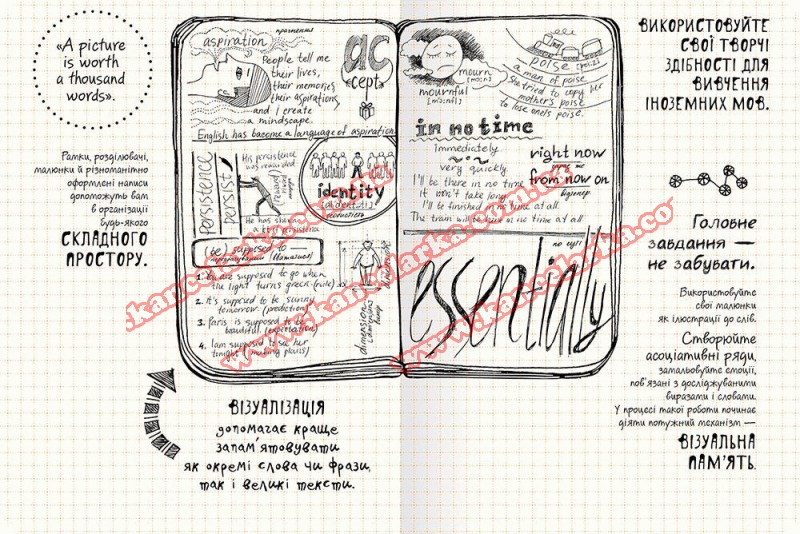 «A picture
is worth
a thousand
words».
Рамки, розділювачі,
малюнки й різноманітно
оформлені написи
допоможуть вам
в організації
будь-якого
СКЛАДНОГО
ПРОСТОРУ.
aspiration
прагнення
People tell me
their lives,
their memories,
their aspirations,
and I create
a mindscape.
English has become a language of aspiration.
ac
cept
persistence
persist
His persistence
was rewarded
He has shown
persistence
identity
(be) supposed to —
1. You are supposed to go when
the light turns green (rule)
2. It's supposed to be sunny
tomorrow (prediction)
3. Paris is supposed to be
beautiful. (expectation)
4. I am supposed to see her
tonight (making plans)
dimension
mourn
mournful
poise
a man of poise
She tried to copy her
mother's poise
to lose one's poise.
in no time
immediately
very quickly
I'll be there in no time
It won't take long
I'll be finished in no time at all.
The train will be here in no time at all
right now
from now on
відтепер
по суті
essentially
ВІЗУАЛІЗАЦІЯ
допомагає краще
запам'ятовувати
як окремі слова чи фрази,
так і великі тексти.
ВИКОРИСТОВУЙТЕ
СВОЇ ТВОРЧІ
ЗДІБНОСТІ ДЛЯ
ВИВЧЕННЯ
ІНОЗЕМНИХ МОВ.
Головне
завдання —
не забувати.
Використовуйте
свої малюнки
як ілюстрації до слів.
Створюйте
асоціативні ряди,
замальовуйте емоції,
пов'язані з досліджуваними
виразами і словами.
У процесі такої роботи починає
діяти потужний механізм —
ВІЗУАЛЬНА
ПАМ'ЯТЬ.
www.kancelarka.com